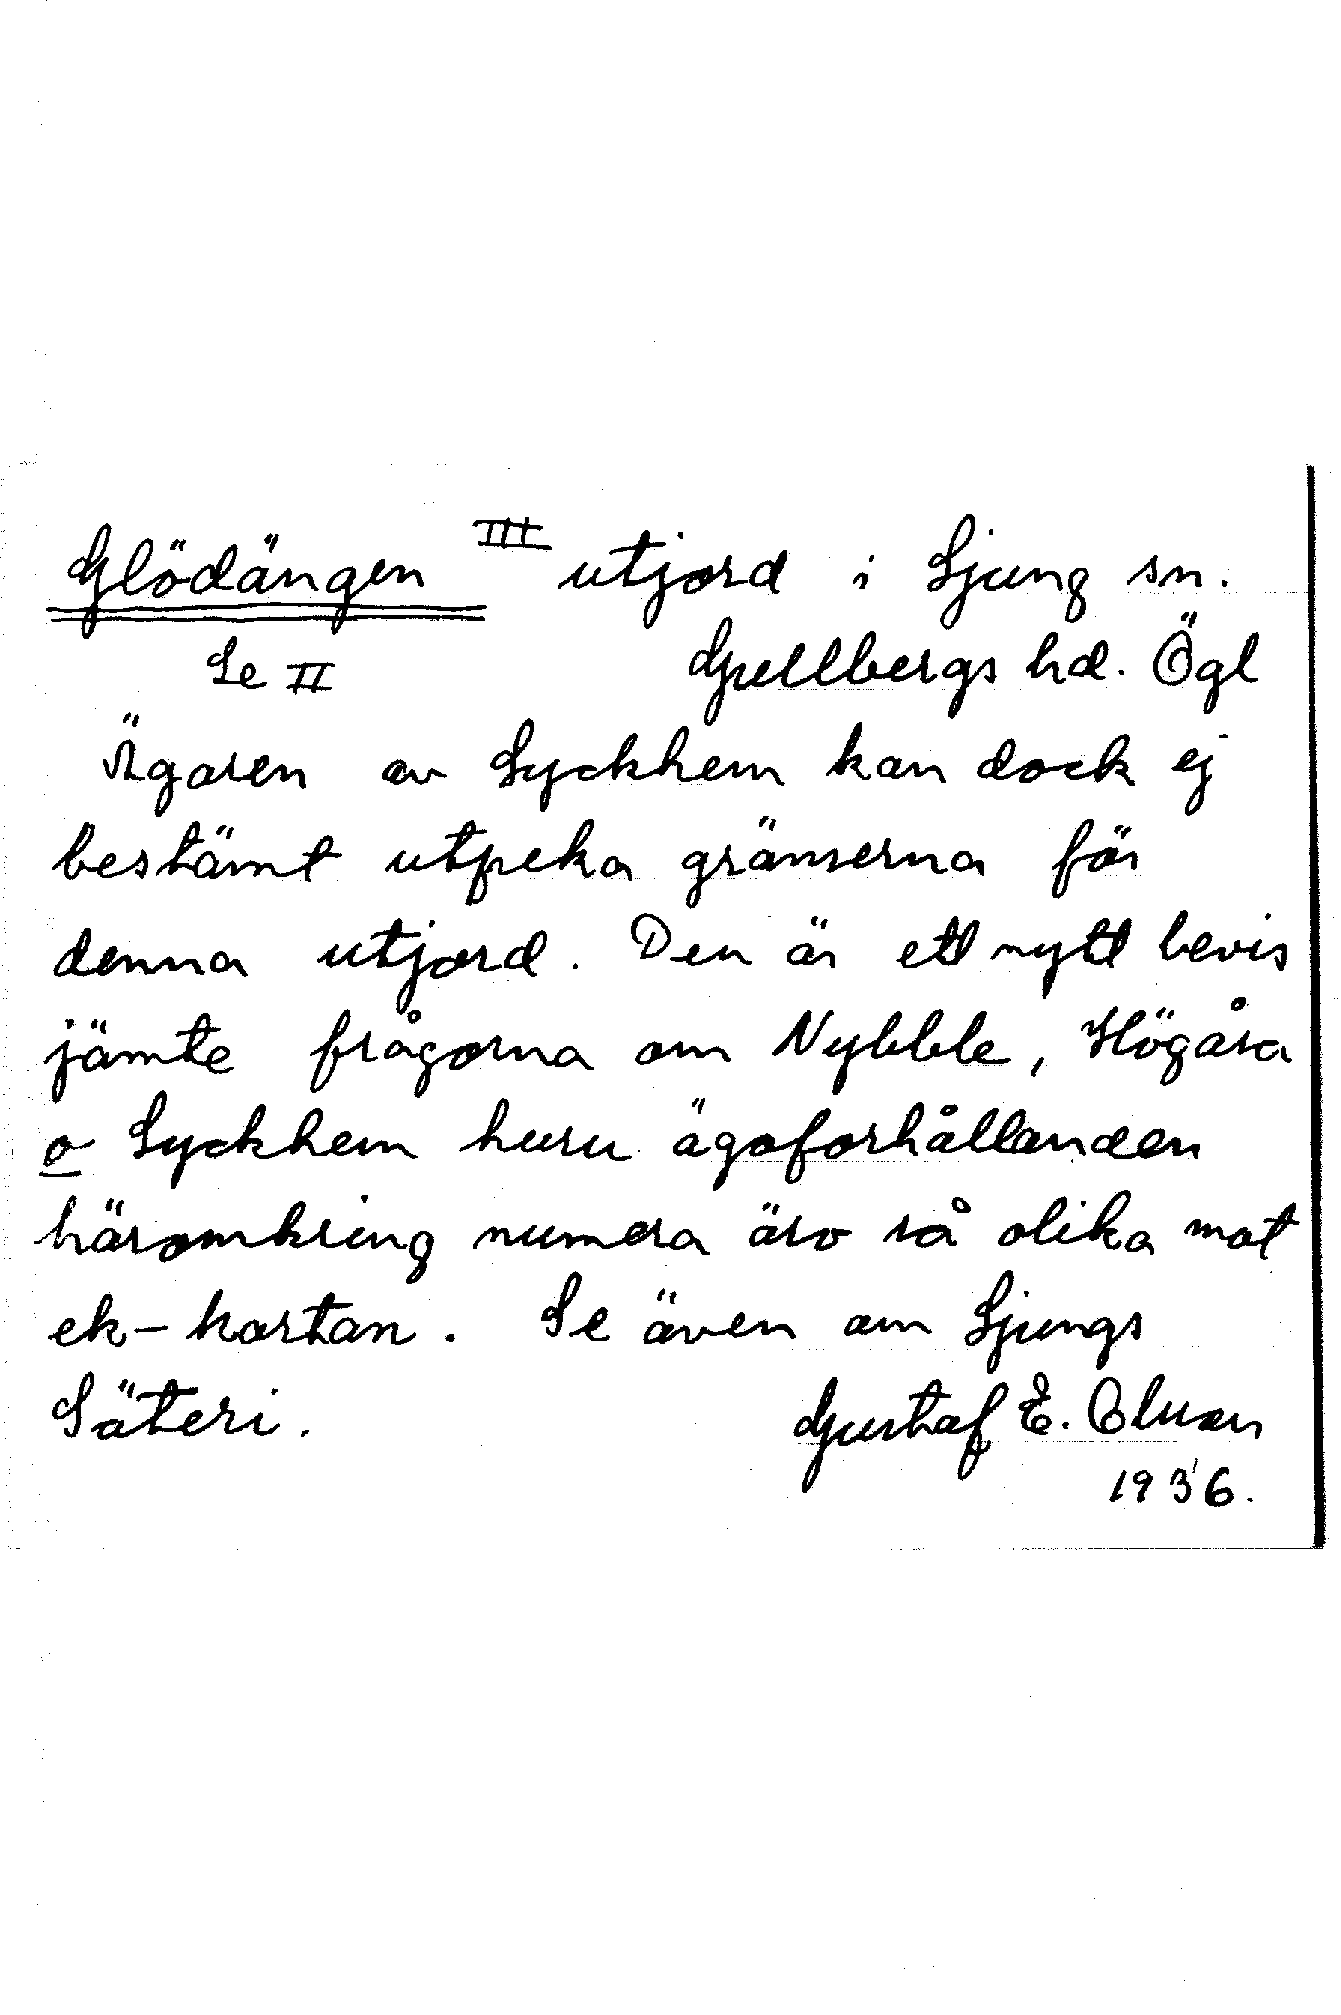 Glödängen III utjord i Ljung sn.
Se II Gullbergs hd. Ögl
Ägaren av Lyckhem kan dock ej
bestämt utpeka gränserna för
denna utjord. Den är ett nytt bevis
jämte frågorna om Nybble, Högåsa
o Lyckhem huru ägoforhållanden
häromkring numera äro så olika mot
ek-kartan. Se även om Ljungs
Säteri. Gustaf E. Olsson
1936.